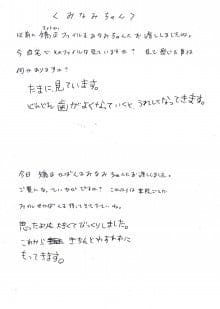 くみなみちゃん>
以前、矯正ファイルをみなみちゃんにお渡ししましたね。
今自宅でもファイルは見ていますか？ 見て感じた事は
何かありますか？
たまに見ています。
どんどん歯がよくなっていくと、うれしくなってきます。
今日 矯正かばんをみなみちゃんにお渡ししました。
ご覧になっていかがですか？ これからは来院ごとに
ファイルをかばんに
思ったより大きくてびっくりしました。
これから きちんとわすれずに
もってきます。